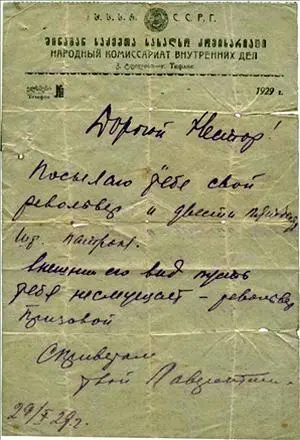 С.С.Р.Г.
ᲨᲘᲜᲐᲒᲐᲜ ᲡᲐᲥᲛᲔᲗᲐ ᲡᲐᲮᲐᲚᲮᲝ ᲙᲝᲛᲘᲡᲐᲠᲘᲐᲢᲘ
НАРОДНЫЙ КОМИССАРИАТ ВНУТРЕННИХ ДЕЛ
№ 1929 г.
Дорогой Нестор!
Посылаю тебе свой
револьвер и двести
шт. патрон.
Внешний его вид пусть
тебя не смущает – револьвер
призовой
С приветом
твой Лаврентий
29/X 29 г.